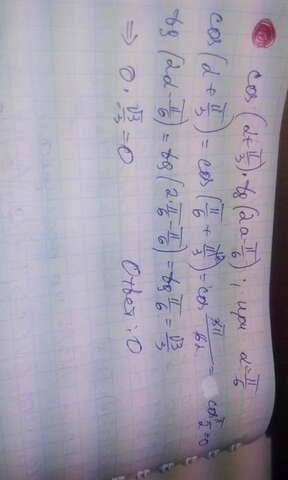 cos(α+π/3)·tg(2α-π/6); при α=π/6
cos(α+π/3)=cos(π/6+π/3)=cos π/2=0
tg(2α-π/6)=tg(2·π/6-π/6)=tg π/6=√3/3
⇒ 0·√3/3=0 Ответ: 0